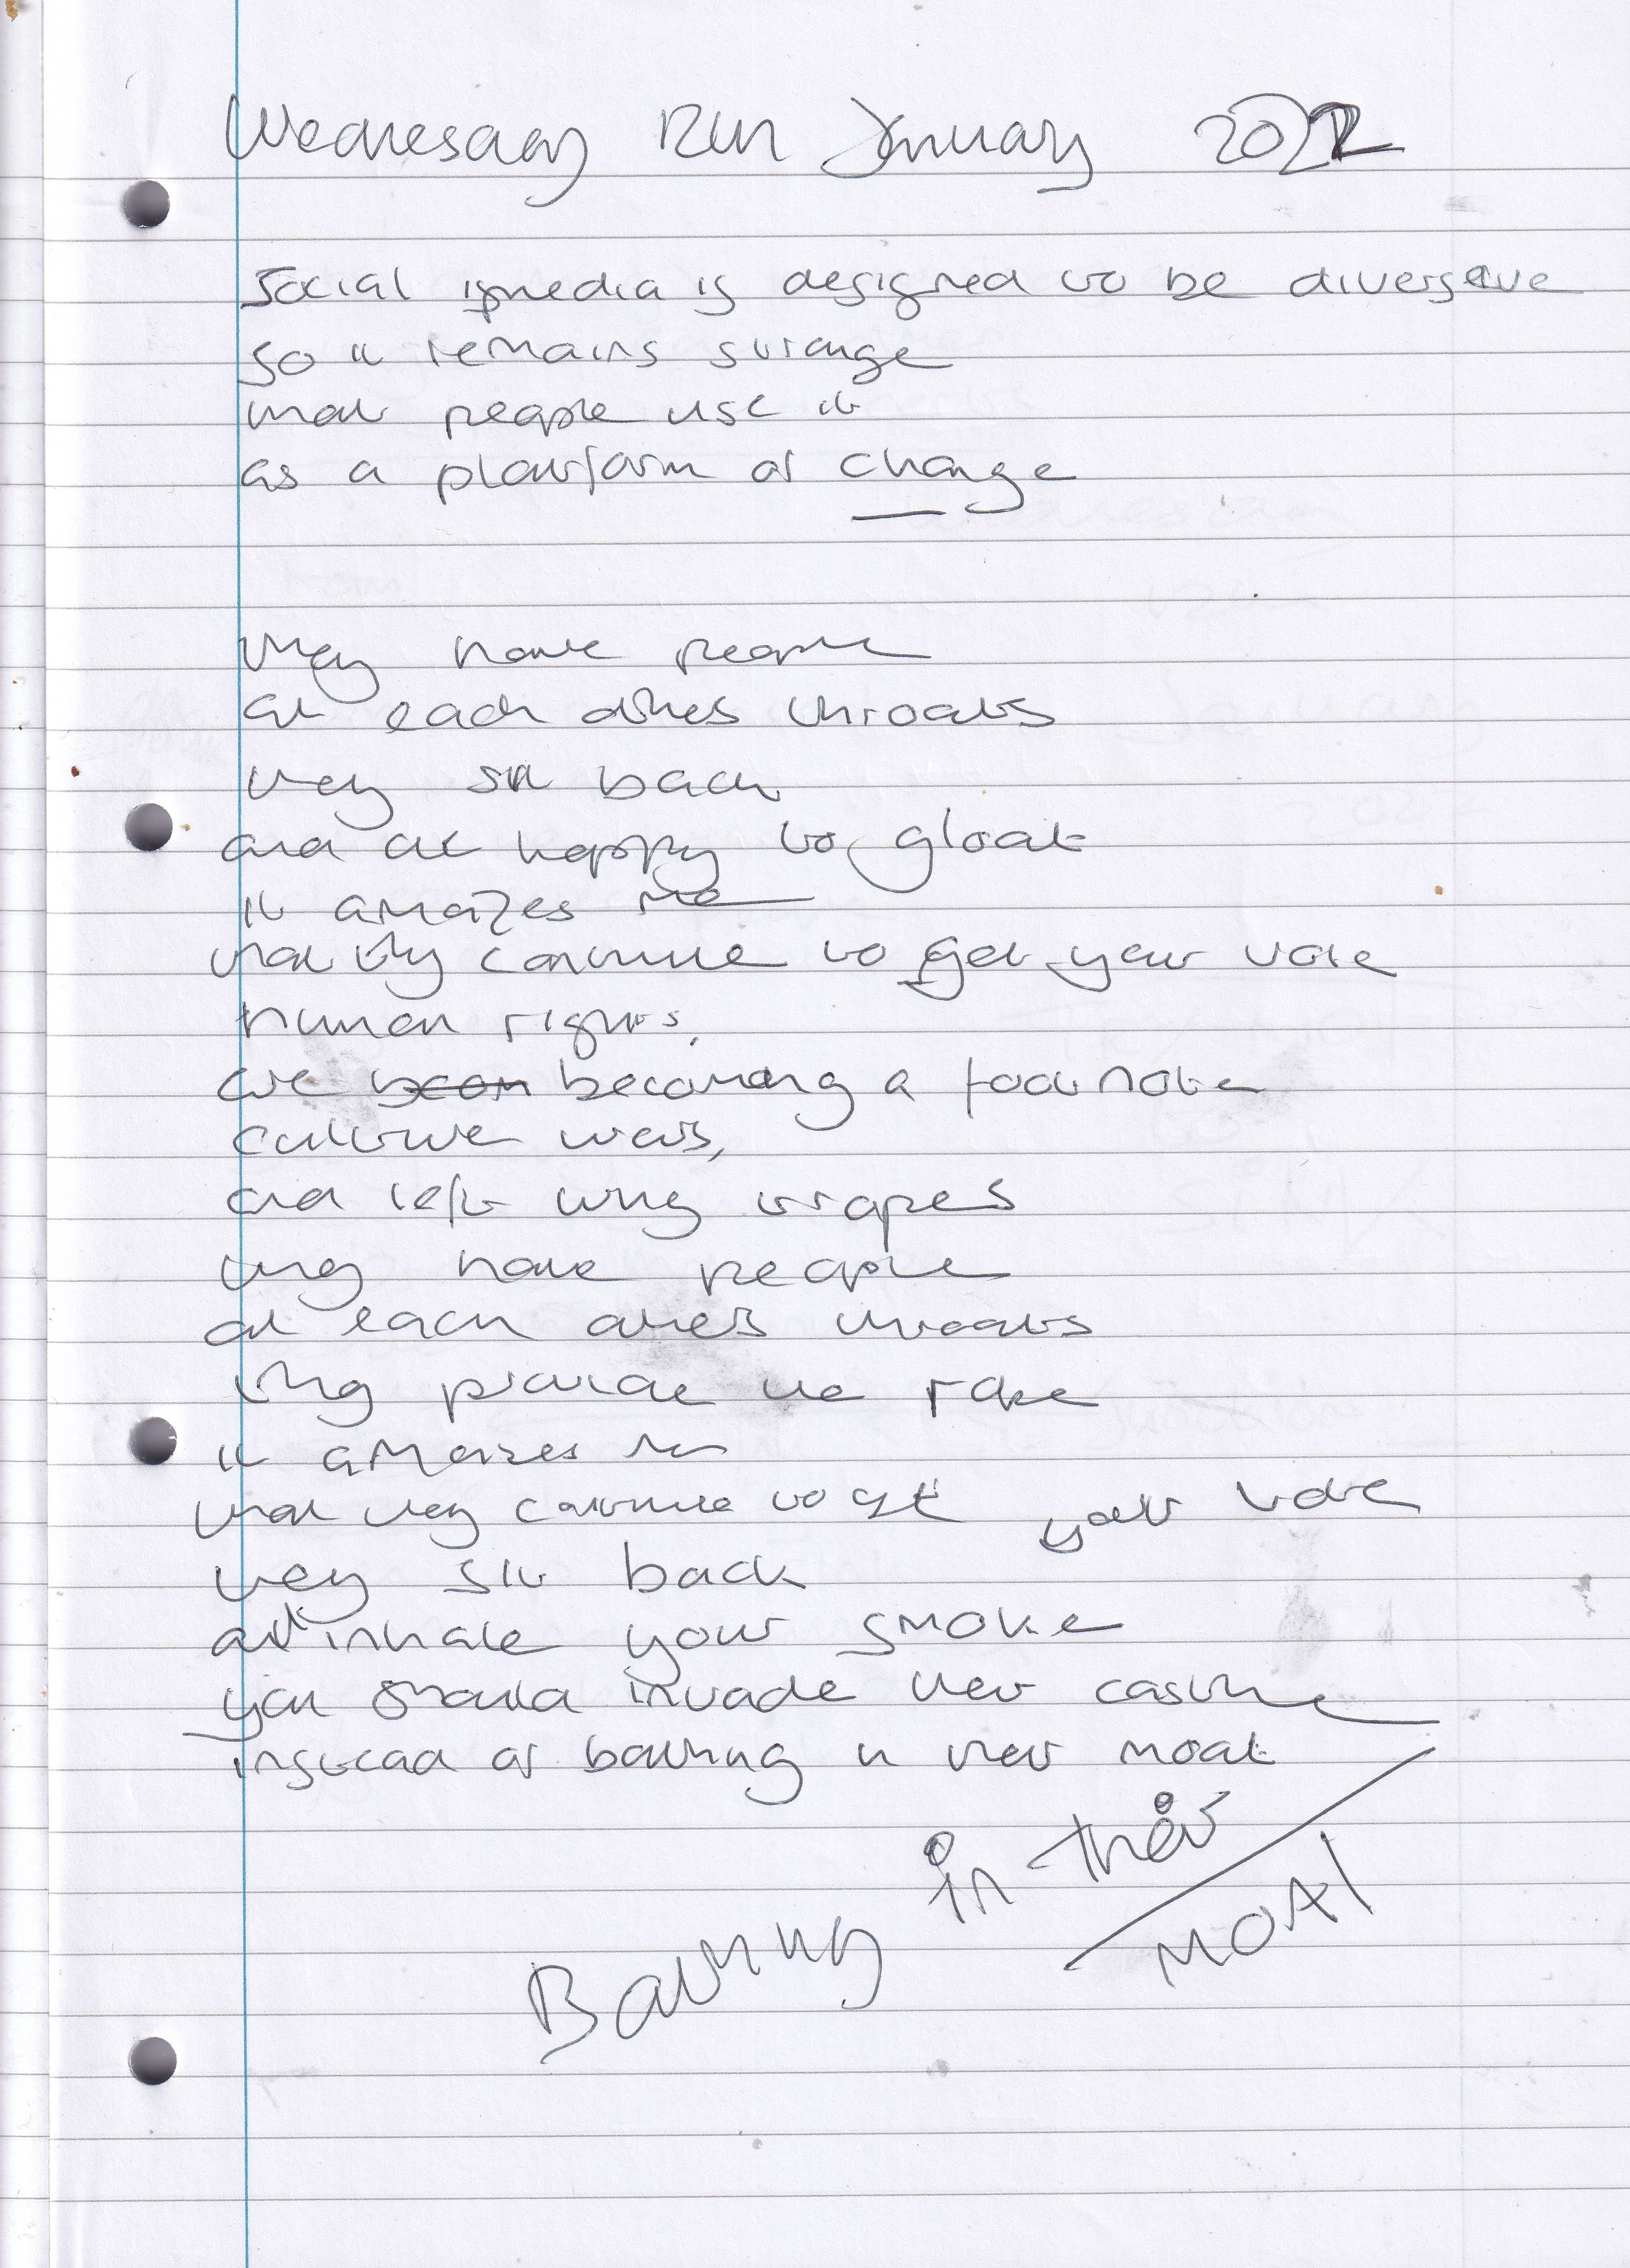 Wednesday 12th January 2022
Social media is designed to be diversive
so it remains strange
that people use it
as a platform of change
they have people
at each others throats
they sit back
and are happy to gloat
it amazes me
that they continue to get your vote
human rights,
are becoming a footnote
culture wars,
and left wing tropes
they have people
at each others throats
they provide the rope
it amazes me
that they continue to get your vote
they sit back
and inhale your smoke
you should invade their castle
instead of bathing in their moat
Bathing in their
MOAT